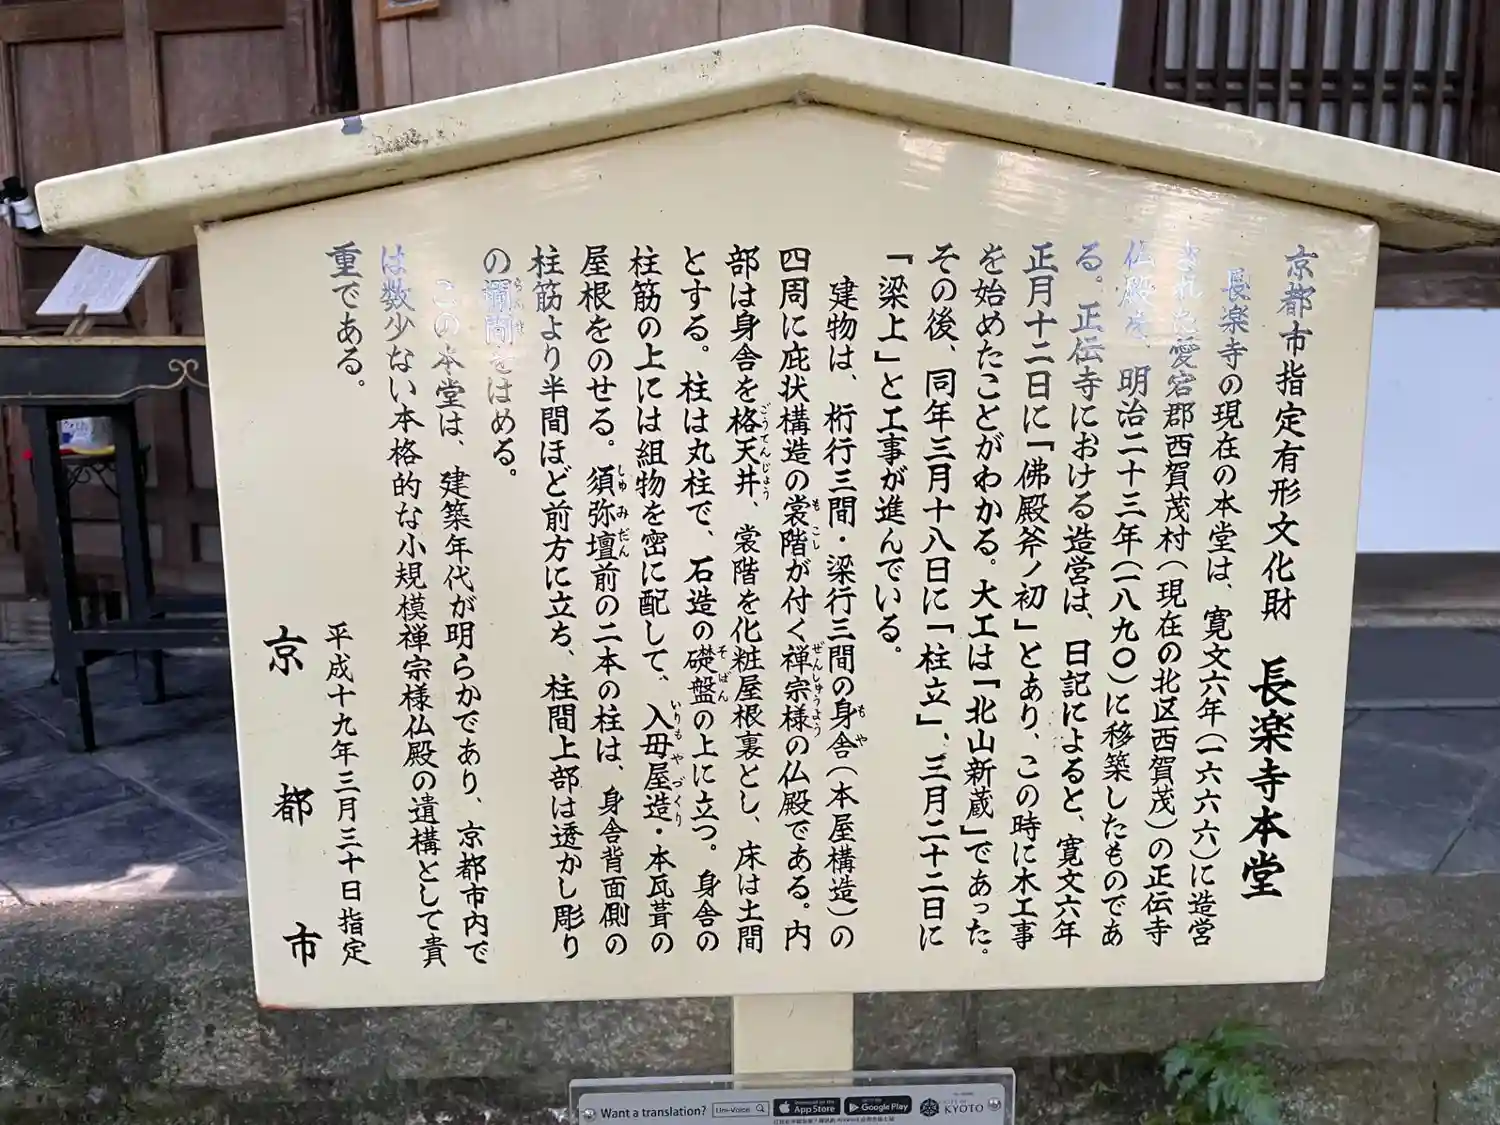 京都市指定有形文化財　長楽寺本堂
長楽寺の現在の本堂は、寛文六年（一六六六）に造営
された愛宕郡西賀茂村（現在の北区西賀茂）の正伝寺
仏殿を、明治二十三年（一八九〇）に移築したものであ
る。正伝寺における造営は、日記によると、寛文六年
正月十二日に「佛殿斧ノ初」とあり、この時に木工事
を始めたことがわかる。大工は「北山新蔵」であった。
その後、同年三月十八日に「柱立」、三月二十二日に
「梁上」と工事が進んでいる。
建物は、桁行三間・梁行三間の身舎（本屋構造）の
四周に庇状構造の裳階が付く禅宗様の仏殿である。内
部は身舎を格天井、裳階を化粧屋根裏とし、床は土間
とする。柱は丸柱で、石造の礎盤の上に立つ。身舎の
柱筋の上には組物を密に配して、入母屋造・本瓦葺の
屋根をのせる。須弥壇前の二本の柱は、身舎背面側の
柱筋より半間ほど前方に立ち、柱間上部は透かし彫り
の欄間をはめる。
この本堂は、建築年代が明らかであり、京都市内で
は数少ない本格的な小規模禅宗様仏殿の遺構として貴
重である。
平成十九年三月三十日指定
京都市
Want a translation? Uni-Voice App Store Google Play KYOTO